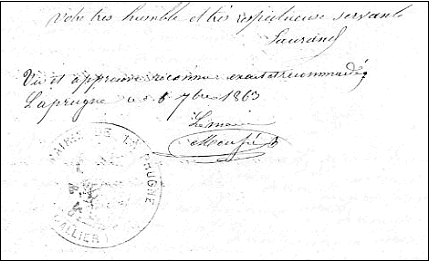 Votre très humble et très respectueuse servante
Laurand
Vu et approuvé reconnu exact et recommandé
Laprugne le 6 7bre 1863
Le maire
MAIRIE DE LAPRUGNE
(ALLIER)